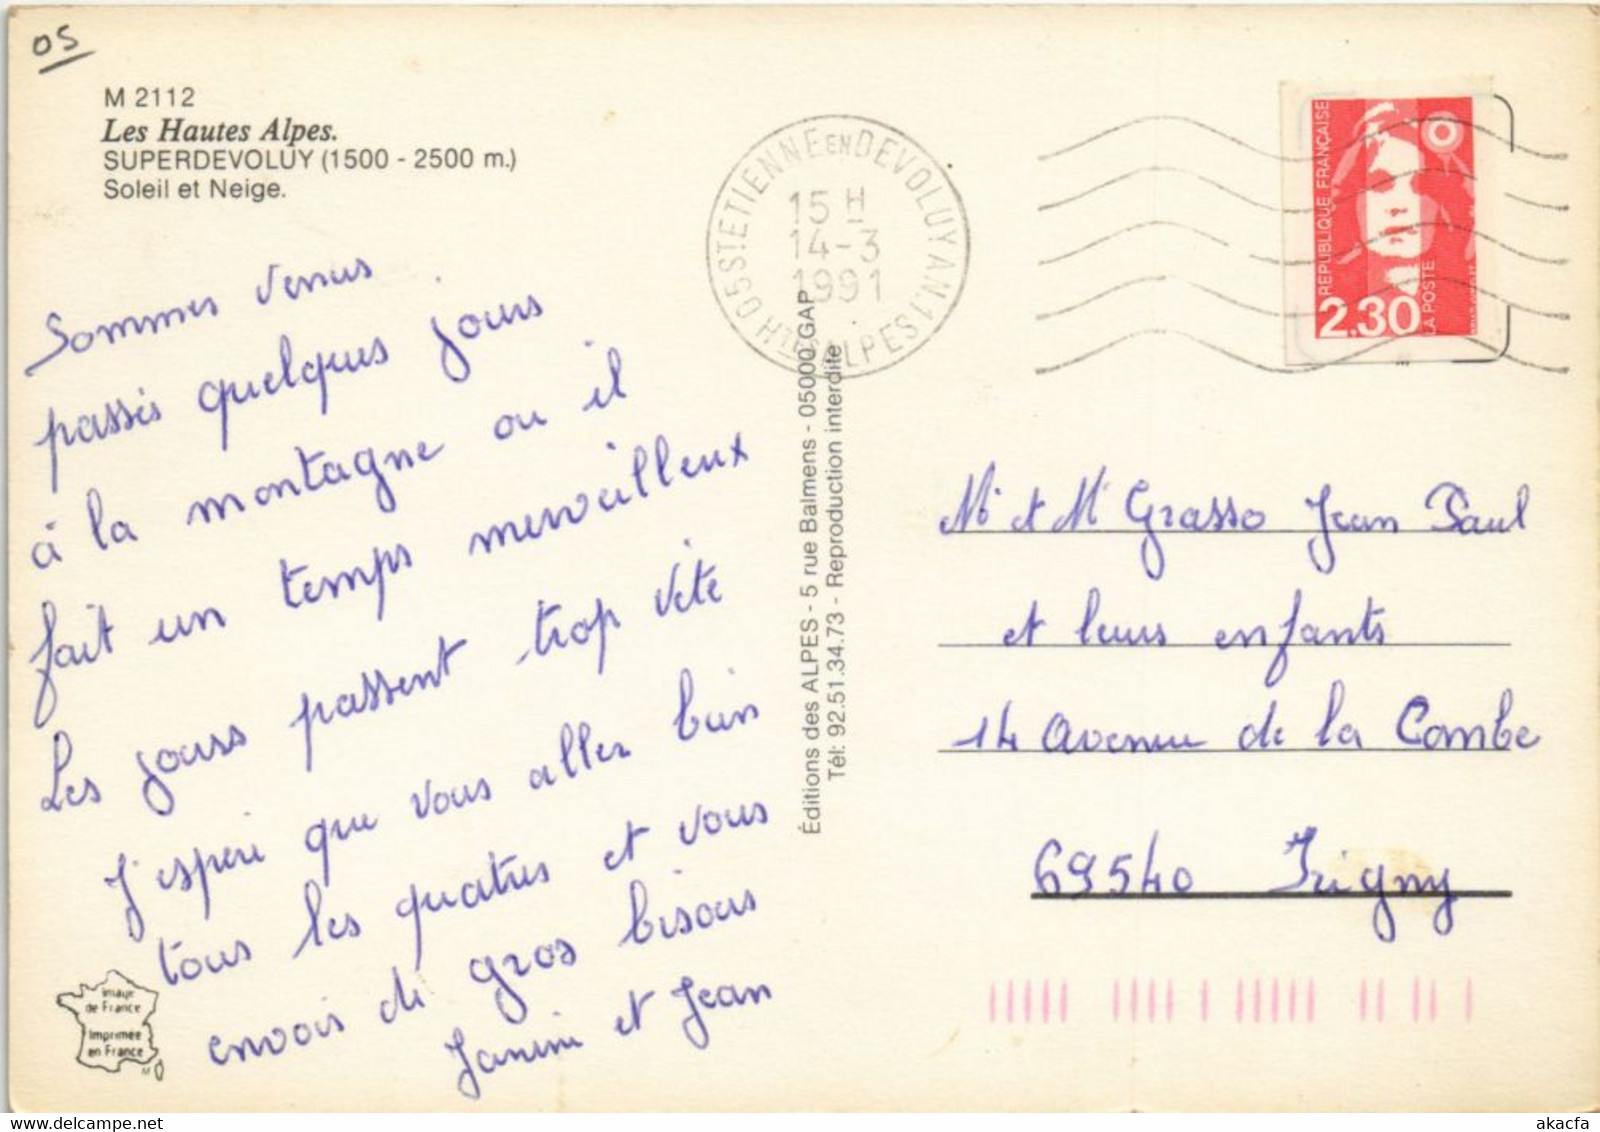 05
M 2112
Les Hautes Alpes.
SUPERDEVOLUY (1500 - 2500 m.)
Soleil et Neige.
Sommes venus
passés quelques jours
à la montagne ou il
fait un temps merveilleux
Les jours passent trop vite
J'espère que vous aller bien
tous les quatres et vous
envois de gros bisous
Janine et Jean
Image
de France
Imprimée
en France
Éditions des ALPES - 5 rue Balmens - 05000 GAP
Tél: 92.51.34.73 - Reproduction interdite
05 ST ETIENNE EN DEVOLUY AN.1
HTES ALPES
15 H
14-3
1991
REPUBLIQUE FRANÇAISE
2.30
LA POSTE
Mr et Mr Grasso Jean Paul
et leurs enfants
14 Avenue de la Combe
69540 Irigny
akacfa